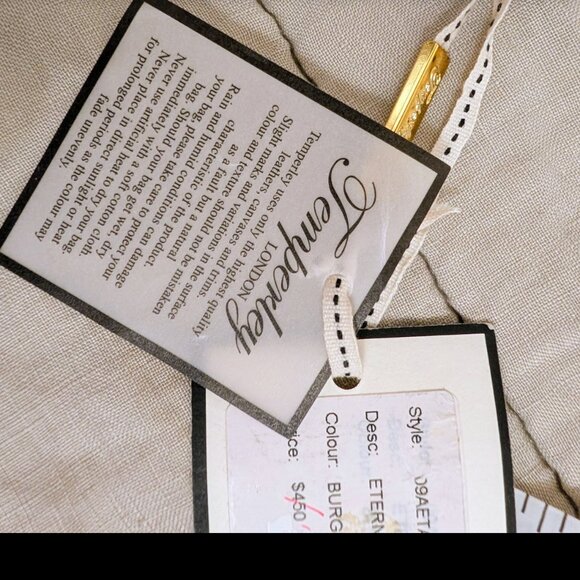 Temperley
LONDON
Temperley uses only the highest quality
leathers, canvases and trims.
Slight marks and variations in the surface
colour and texture should not be mistaken
as a fault but a natural
characteristic of the product.
Rain and humid conditions can damage
your bag, please take care to protect your
bag. Should your bag get wet, dry
immediately with a soft cotton cloth.
Never use artificial heat to dry your bag.
Never place in direct sunlight or heat
for prolonged periods as the colour may
fade unevenly.
Style: 09AETA
Desc: ETERN
Colour: BURG
rice: $450